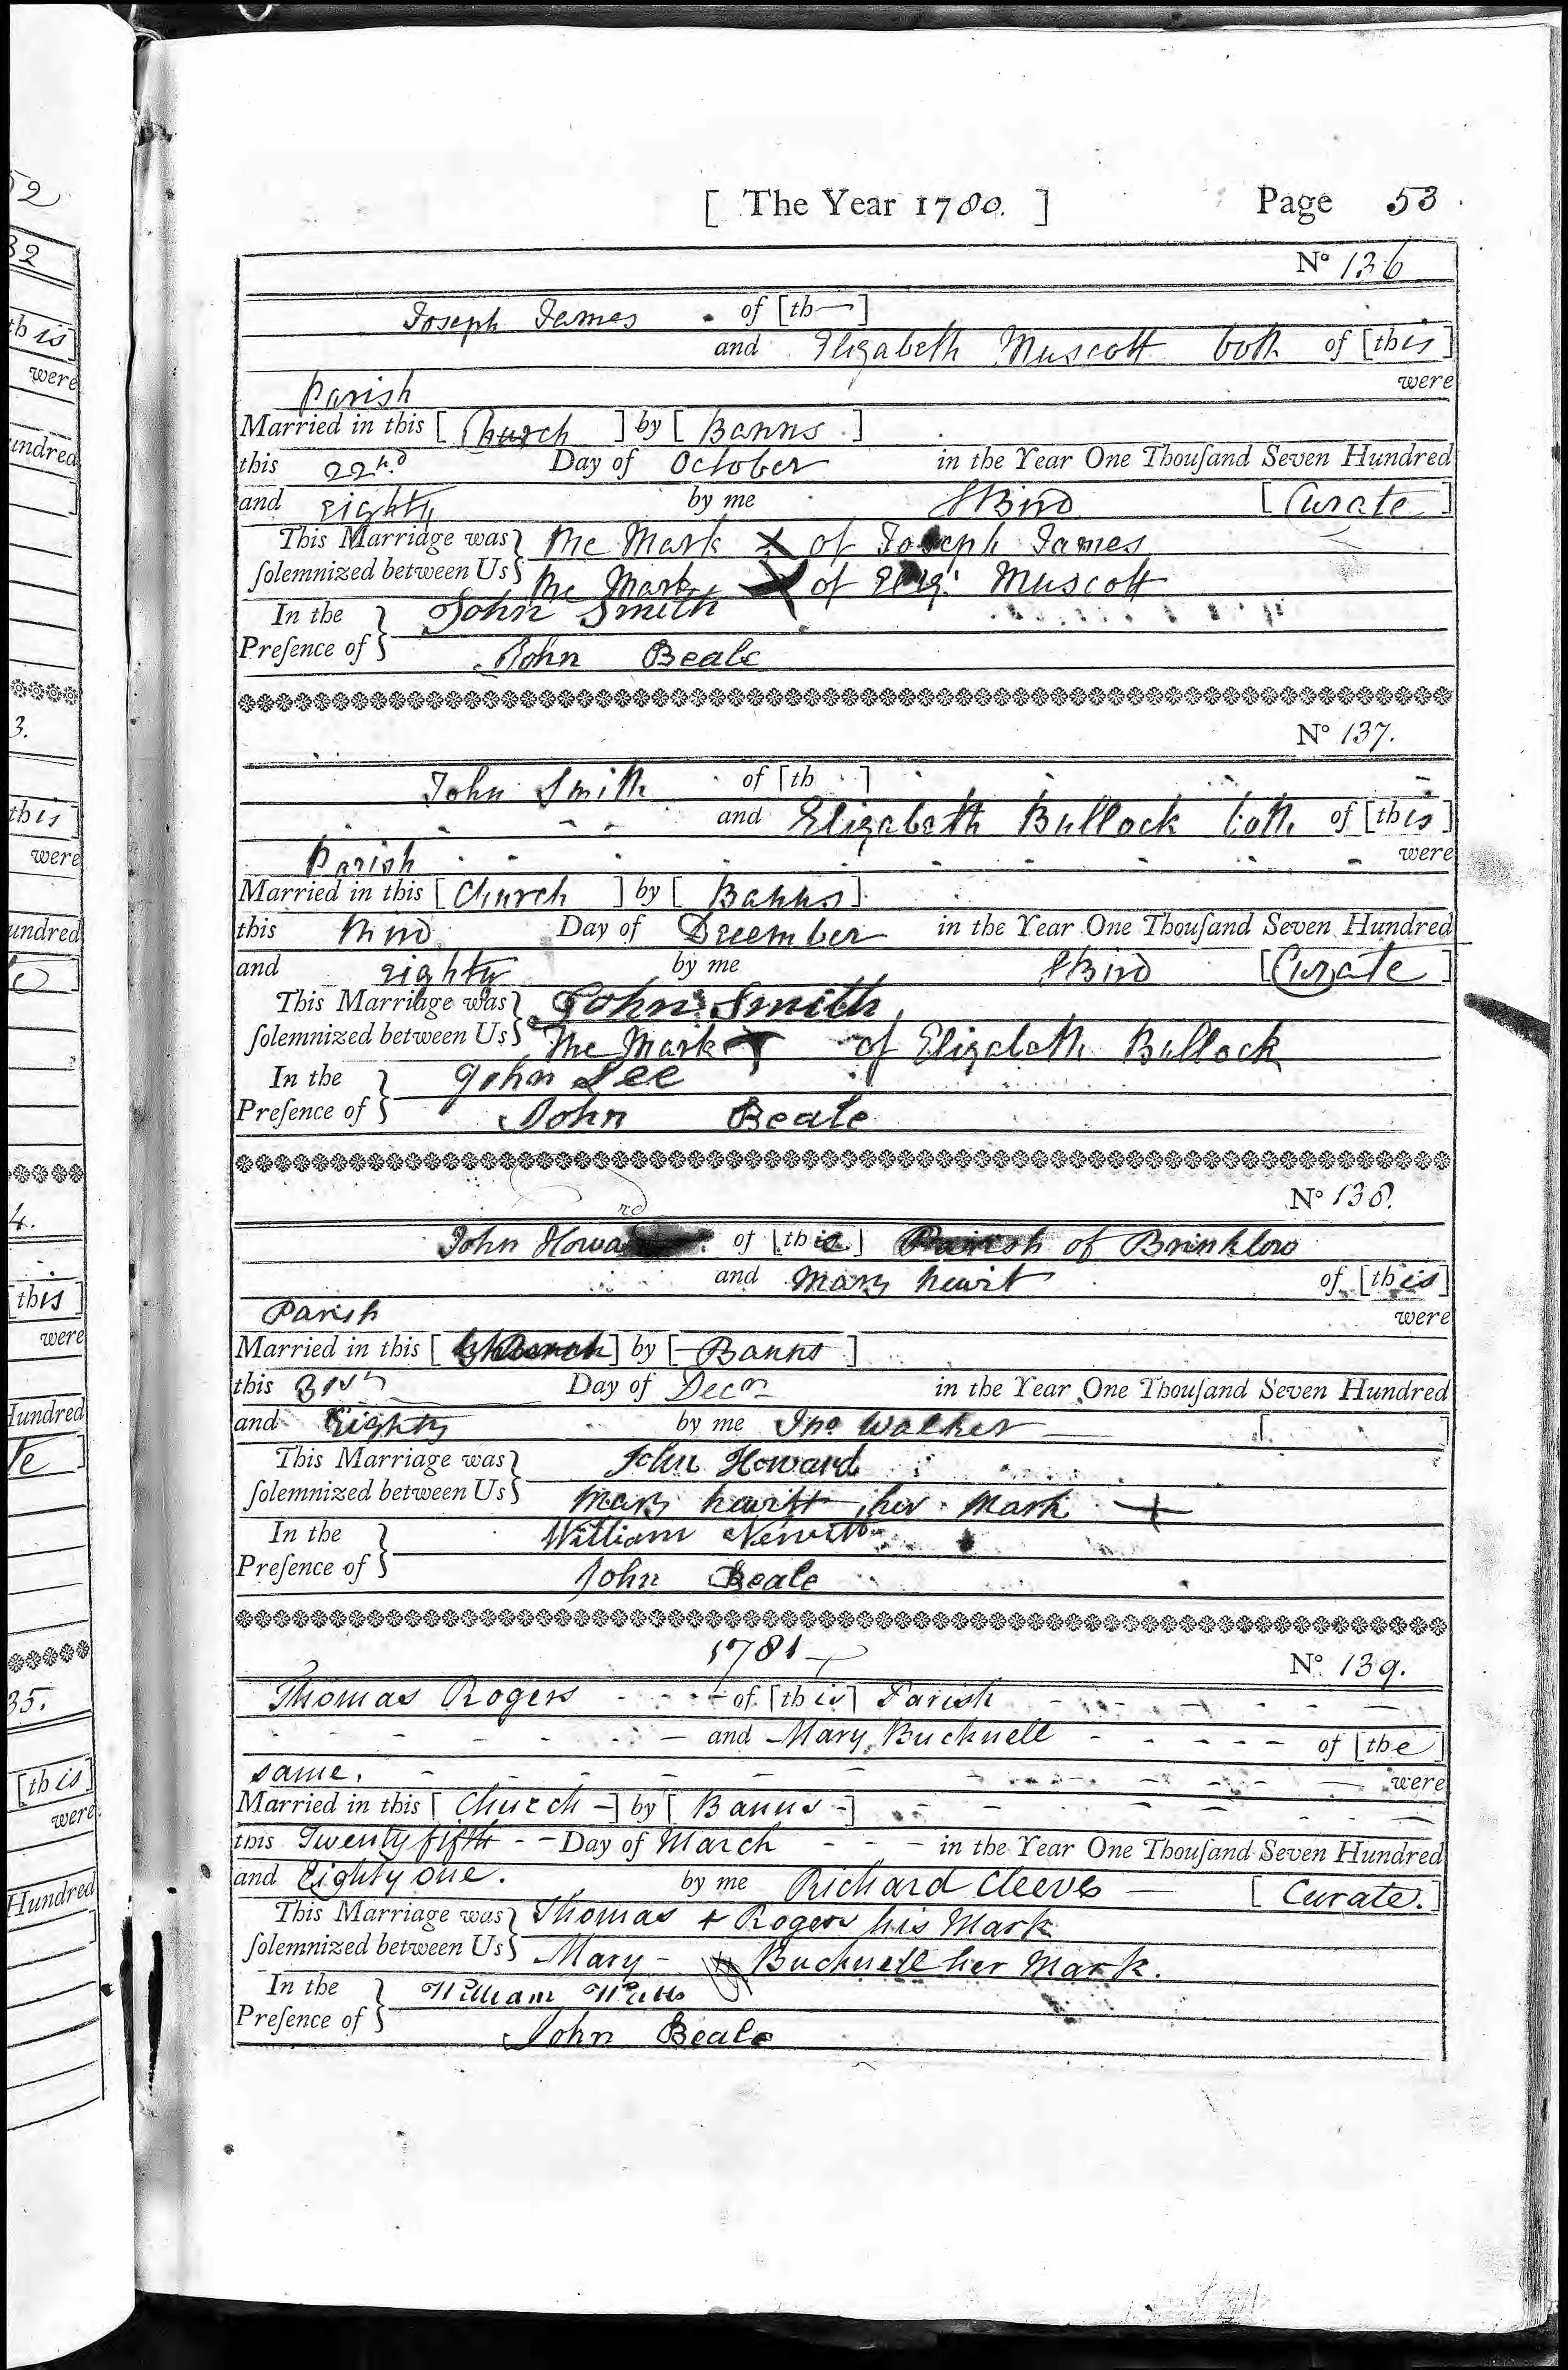 [ The Year 1780. ] Page 53
No 136
Joseph James of [th—]
and Elizabeth Muscott both of [this]
Parish were
Married in this [ Church ] by [ Banns ]
this 22nd Day of October in the Year One Thouſand Seven Hundred
and eighty by me Bird [ Curate ]
This Marriage was } The Mark X of Joseph James
ſolemnized between Us } The Mark X of Eliz: Muscott
In the } John Smith
Preſence of } John Beale
No 137.
John Smith of [th ]
and Elizabeth Bullock both of [this]
Parish were
Married in this [ Church ] by [ Banns ]
this third Day of December in the Year One Thouſand Seven Hundred
and eighty by me Bird [ Curate ]
This Marriage was } John Smith
ſolemnized between Us } The Mark X of Elizabeth Bullock
In the } John Lee
Preſence of } John Beale
No 138.
rd
John Howa of [the] Parish of Brinklow
and Mary hewit of [this]
Parish were
Married in this [ Church ] by [ Banns ]
this Day of Decr in the Year One Thouſand Seven Hundred
and Eighty by me Jno Walker [ ]
This Marriage was } John Howard
ſolemnized between Us } Mary hewitt her Mark +
In the } William
Preſence of } John Beale
1781
No. 139.
Thomas Rogers - - - of [this] Parish - - - -
- - - - and Mary Bucknell - - - - - of [the]
same. - - - - - were
Married in this [ Church - ] by [ Banns - ]
this Twenty fifth - - Day of March - - - in the Year One Thouſand Seven Hundred
and Eighty one. by me Richard Cleeves — [ Curate. ]
This Marriage was } Thomas + Rogers his Mark
ſolemnized between Us } Mary - Bucknell her Mark.
In the } William
Preſence of } John Beale
52
32
this]
were
undred
3.
this]
were
undred
4.
[this]
were
Hundred
te ]
35.
[this]
were
Hundred